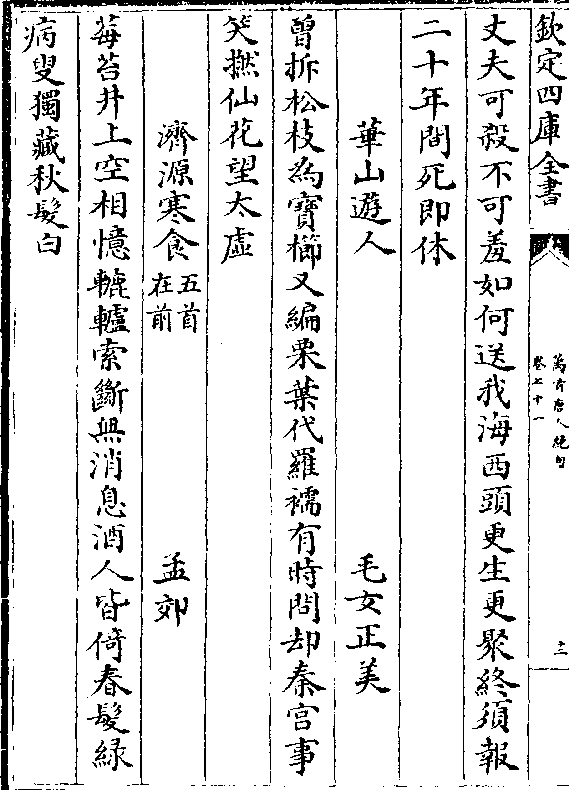 欽定四庫全書
萬首唐人絶句
卷七十一
十二
丈夫可殺不可羞如何送我海西頭更生更聚終須報
二十年間死即休
華山遊人 毛女正美
曾折松枝為寶櫛又編栗葉代羅襦有時問却秦宫事
笑撚仙花望太虚
濟源寒食五首在前 孟郊
莓苔井上空相憶轆轤索斷無消息酒人皆倚春髮緑
病叟獨藏秋髮白